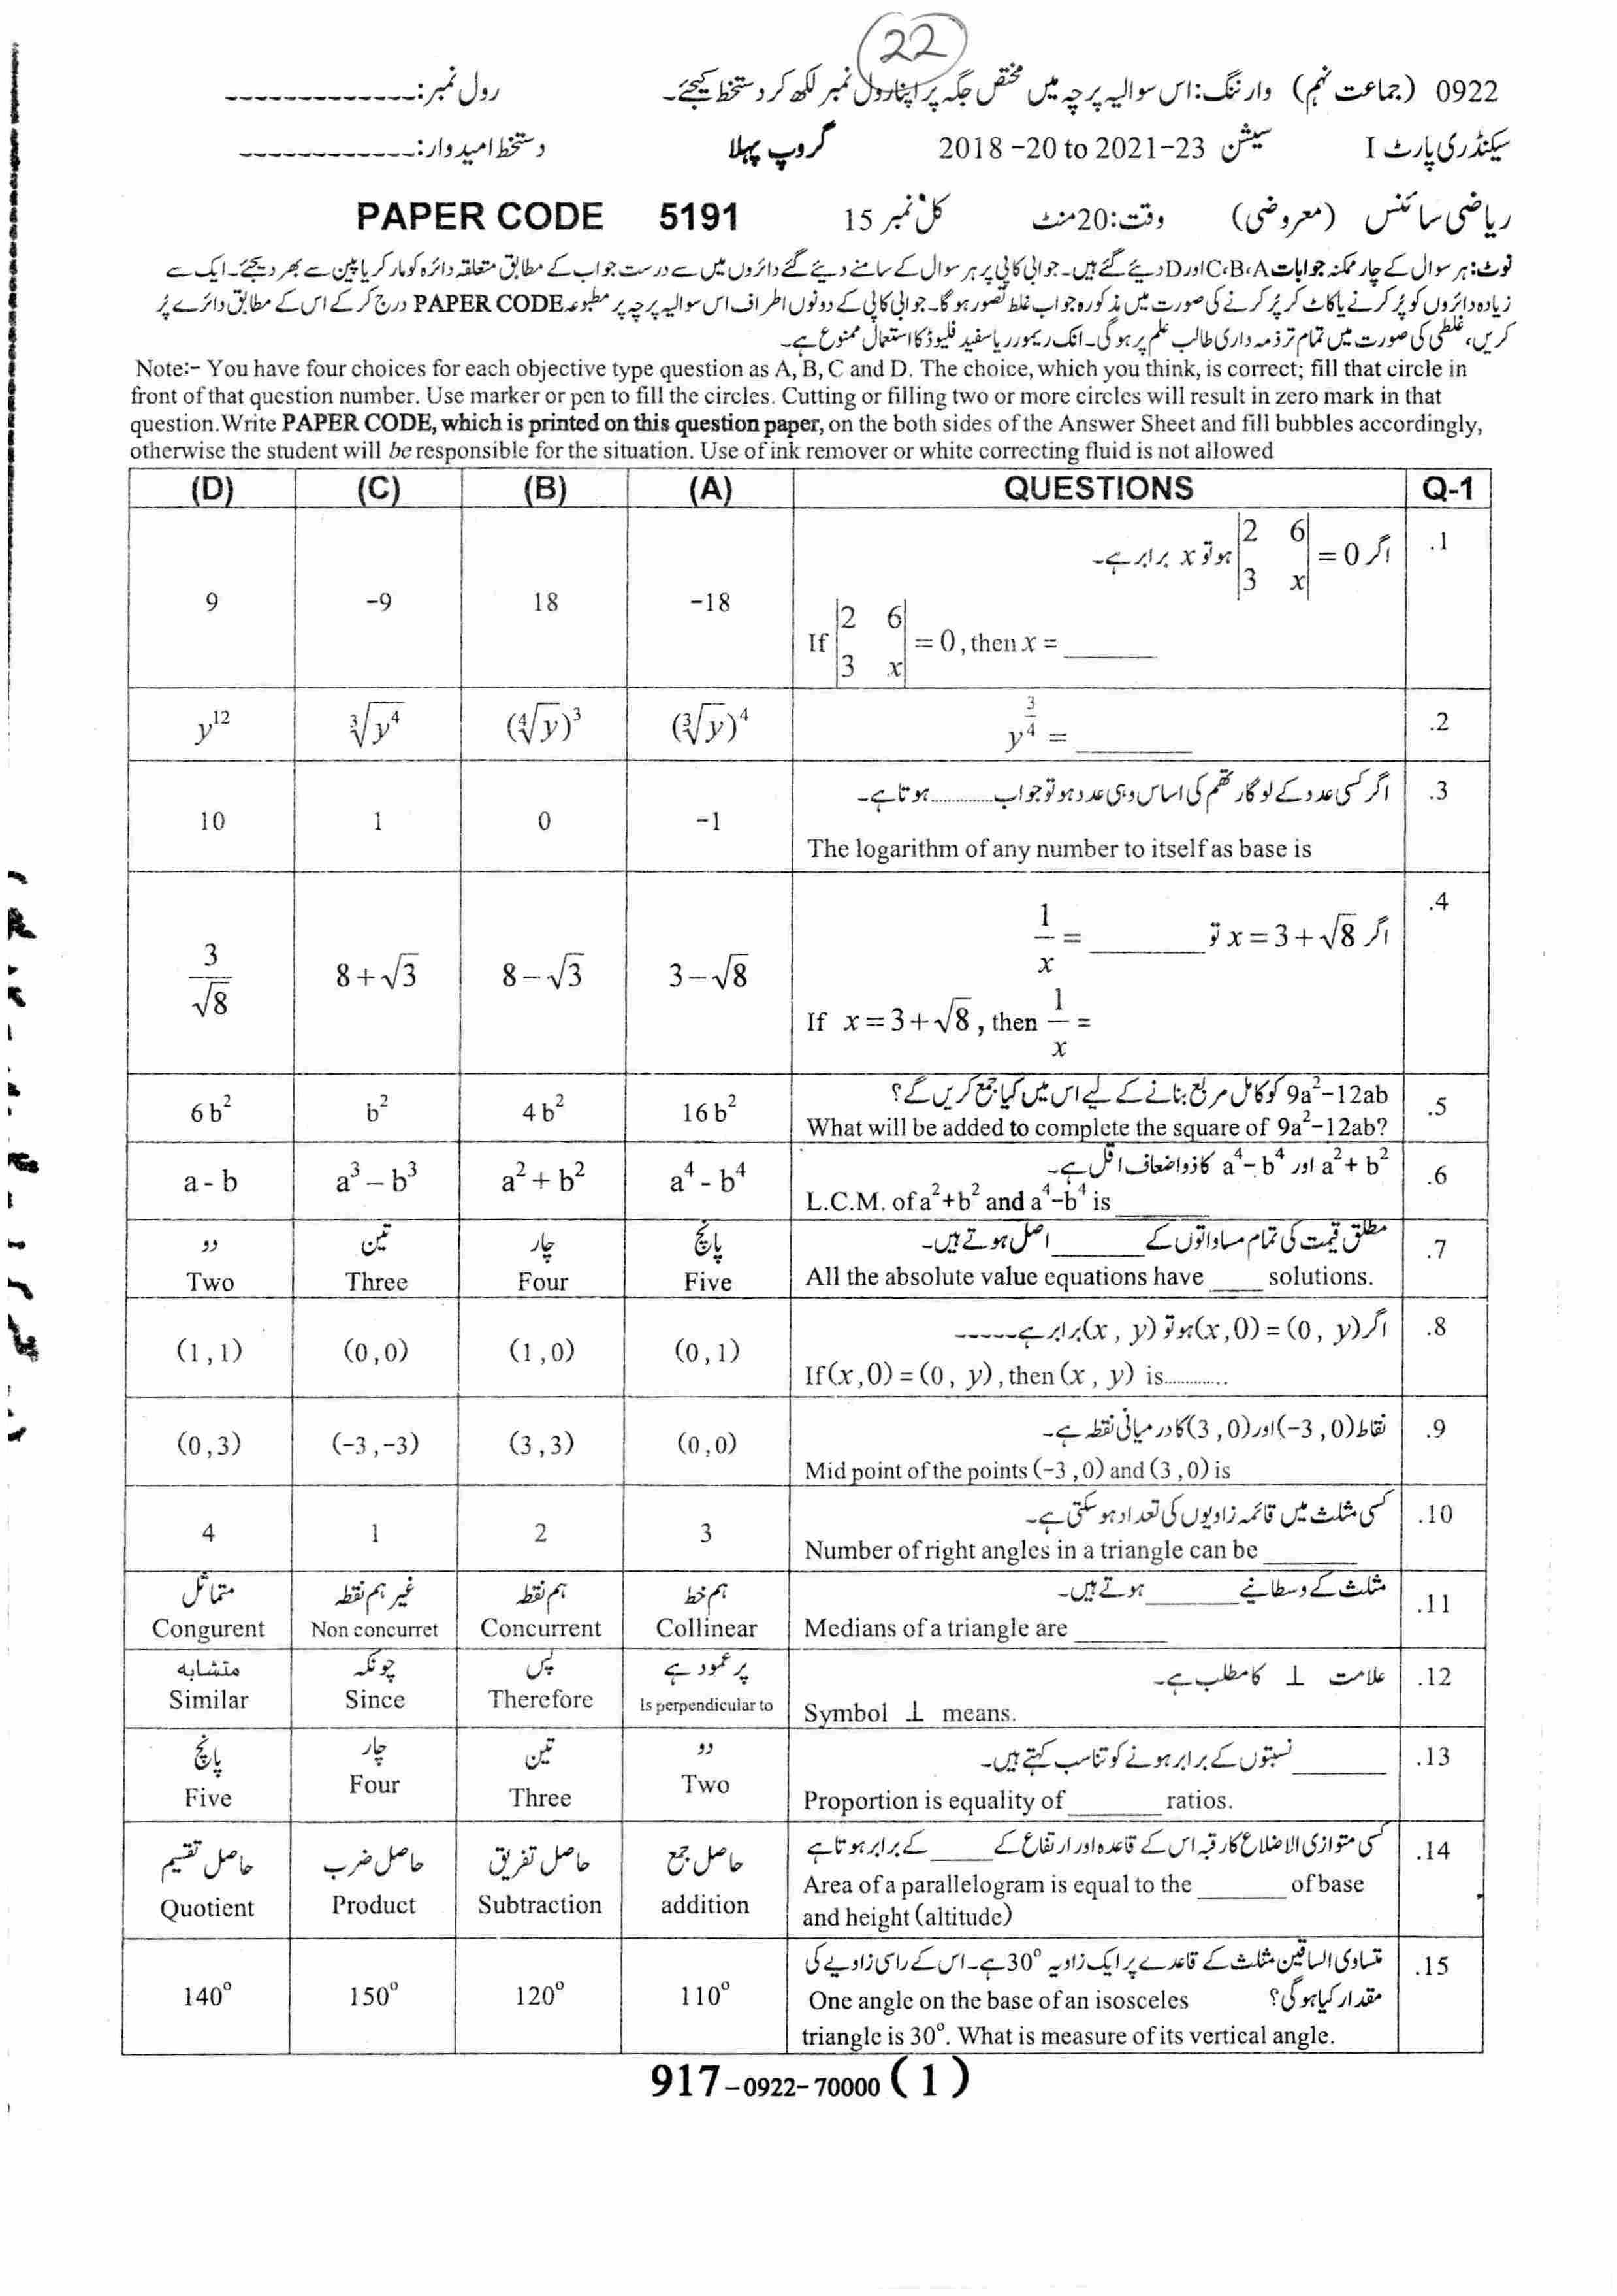 22
0922 (جماعت نہم) وارننگ: اس سوالیہ پرچہ میں مختص جگہ پر اپنا رول نمبر لکھ کر دستخط کیجئے۔ رول نمبر: -------------
سیکنڈری پارٹ I سیشن 2018 -20 to 2021-23 گروپ پہلا دستخط امیدوار: ------------
ریاضی سائنس (معروضی) وقت: 20 منٹ کل نمبر 15 PAPER CODE 5191
نوٹ: ہر سوال کے چار ممکنہ جوابات A،B،C اور D دیئے گئے ہیں۔ جوابی کاپی پر ہر سوال کے سامنے دیئے گئے دائروں میں سے درست جواب کے مطابق متعلقہ دائرہ کو مارکر یا پین سے بھر دیجئے۔ ایک سے
زیادہ دائروں کو پُر کرنے یا کاٹ کر پُر کرنے کی صورت میں مذکورہ جواب غلط تصور ہوگا۔ جوابی کاپی کے دونوں اطراف اس سوالیہ پرچہ پر مطبوعہ PAPER CODE درج کر کے اس کے مطابق دائرے پُر
کریں، غلطی کی صورت میں تمام تر ذمہ داری طالب علم پر ہوگی۔ انک ریمور یا سفید فلیوڈ کا استعمال ممنوع ہے۔
Note:- You have four choices for each objective type question as A, B, C and D. The choice, which you think, is correct; fill that circle in
front of that question number. Use marker or pen to fill the circles. Cutting or filling two or more circles will result in zero mark in that
question. Write PAPER CODE, which is printed on this question paper, on the both sides of the Answer Sheet and fill bubbles accordingly,
otherwise the student will be responsible for the situation. Use of ink remover or white correcting fluid is not allowed
(D) (C) (B) (A) QUESTIONS Q-1
.1 اگر |2 6; 3 x| = 0 ہو تو x برابر ہے۔
If |2 6; 3 x| = 0 , then x = ______
9 -9 18 -18
.2 y^(3/4) = ______
y¹² ∛y⁴ (∜y)³ (∛y)⁴
.3 اگر کسی عدد کے لوگارتھم کی اساس وہی عدد ہو تو جواب ............ ہوتا ہے۔
The logarithm of any number to itself as base is
10 1 0 -1
.4 اگر x = 3 + √8 تو 1/x = ______
If x = 3 + √8 , then 1/x =
3/√8 8+√3 8-√3 3-√8
.5 9a²-12ab کو کامل مربع بنانے کے لیے اس میں کیا جمع کریں گے؟
What will be added to complete the square of 9a²-12ab?
6b² b² 4b² 16b²
.6 a²+ b² اور a⁴- b⁴ کا ذواضعاف اقل ہے۔
L.C.M. of a²+b² and a⁴-b⁴ is ______
a - b a³ - b³ a² + b² a⁴ - b⁴
.7 مطلق قیمت کی تمام مساواتوں کے ______ اصل ہوتے ہیں۔
All the absolute value equations have ____ solutions.
دو تین چار پانچ
Two Three Four Five
.8 اگر (x,0) = (0, y) ہو تو (x , y) برابر ہے -----
If (x,0) = (0, y), then (x , y) is............
(1,1) (0,0) (1,0) (0,1)
.9 نقاط (-3 ,0) اور (3 ,0) کا درمیانی نقطہ ہے۔
Mid point of the points (-3 ,0) and (3 ,0) is
(0,3) (-3,-3) (3,3) (0,0)
.10 کسی مثلث میں قائمہ زاویوں کی تعداد ہو سکتی ہے۔
Number of right angles in a triangle can be ______
4 1 2 3
.11 مثلث کے وسطانیے ______ ہوتے ہیں۔
Medians of a triangle are ______
متماثل غیر ہم نقطہ ہم نقطہ ہم خط
Congurent Non concurret Concurrent Collinear
.12 علامت ⊥ کا مطلب ہے۔
Symbol ⊥ means.
متشابہ چونکہ پس پر عمود ہے
Similar Since Therefore Is perpendicular to
.13 ______ نسبتوں کے برابر ہونے کو تناسب کہتے ہیں۔
Proportion is equality of ______ ratios.
پانچ چار تین دو
Five Four Three Two
.14 کسی متوازی الاضلاع کا رقبہ اس کے قاعدہ اور ارتفاع کے ____ کے برابر ہوتا ہے
Area of a parallelogram is equal to the ______ of base
and height (altitude)
حاصل تقسیم حاصل ضرب حاصل تفریق حاصل جمع
Quotient Product Subtraction addition
.15 متساوی الساقین مثلث کے قاعدے پر ایک زاویہ 30° ہے۔ اس کے راسی زاویے کی
مقدار کیا ہوگی؟ One angle on the base of an isosceles
triangle is 30°. What is measure of its vertical angle.
140° 150° 120° 110°
917-0922-70000 (1)